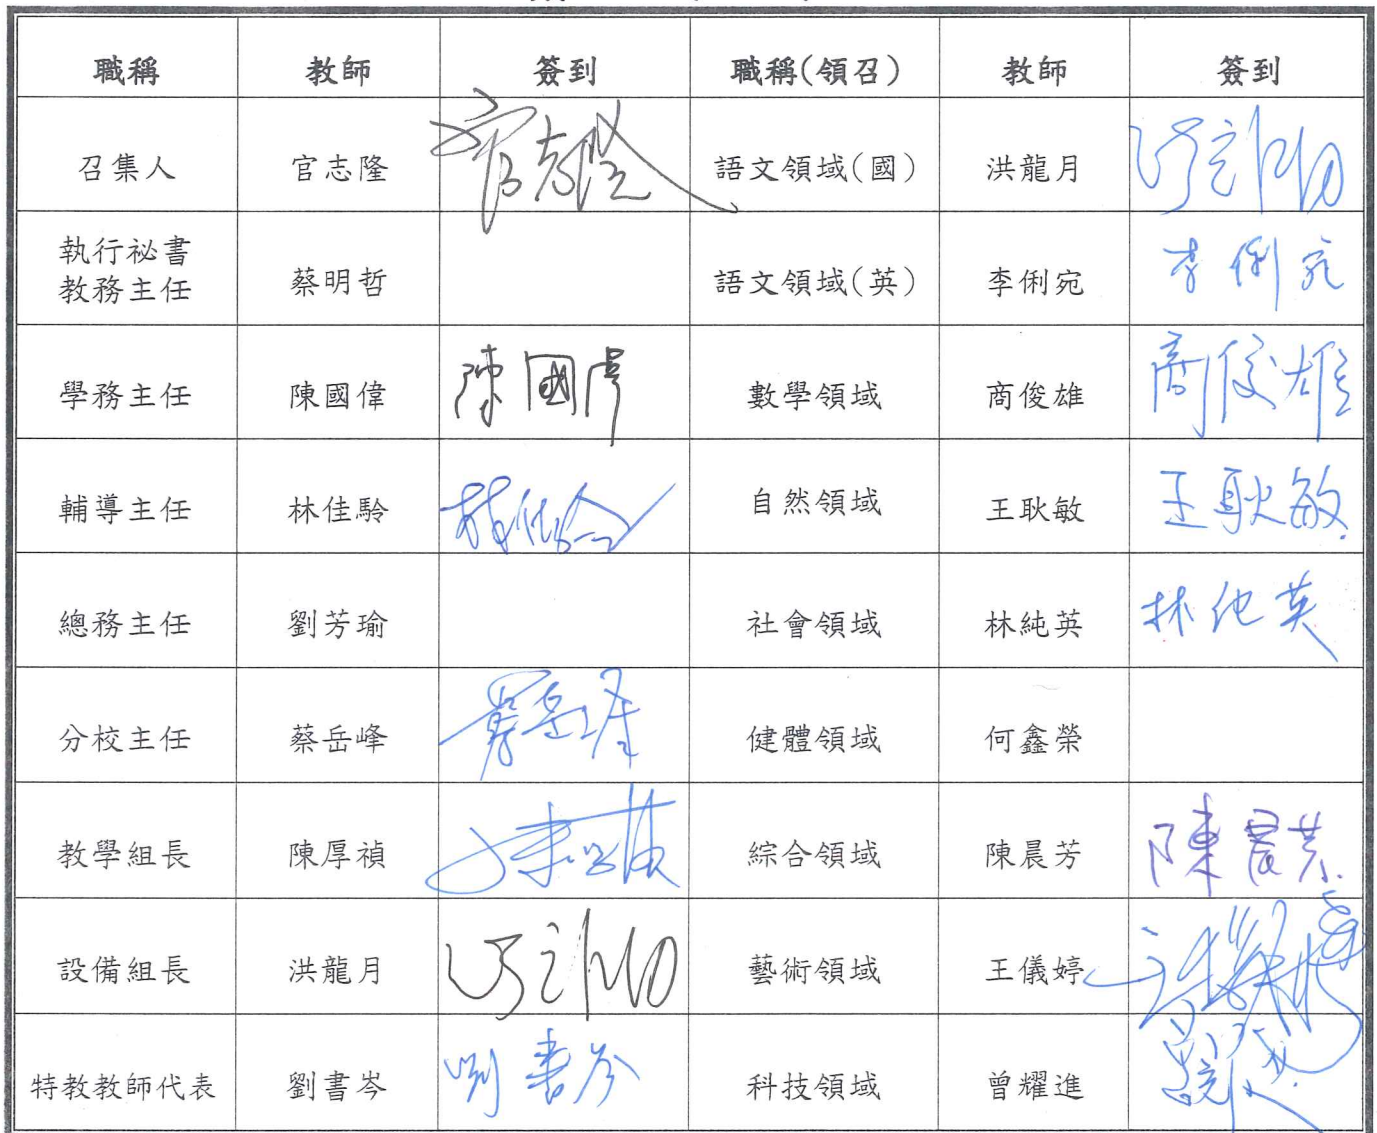 職稱 教師 簽到 職稱(領召) 教師 簽到
召集人 官志隆 官志隆 語文領域(國) 洪龍月
執行祕書
教務主任 蔡明哲 語文領域(英) 李俐宛 李俐宛
學務主任 陳國偉 陳國偉 數學領域 商俊雄 商俊雄
輔導主任 林佳駖 自然領域 王耿敏 王耿敏
總務主任 劉芳瑜 社會領域 林純英 林純英
分校主任 蔡岳峰 蔡岳峰 健體領域 何鑫榮
教學組長 陳厚禎 綜合領域 陳晨芳 陳晨芳
設備組長 洪龍月 藝術領域 王儀婷
特教教師代表 劉書岑 劉書岑 科技領域 曾耀進